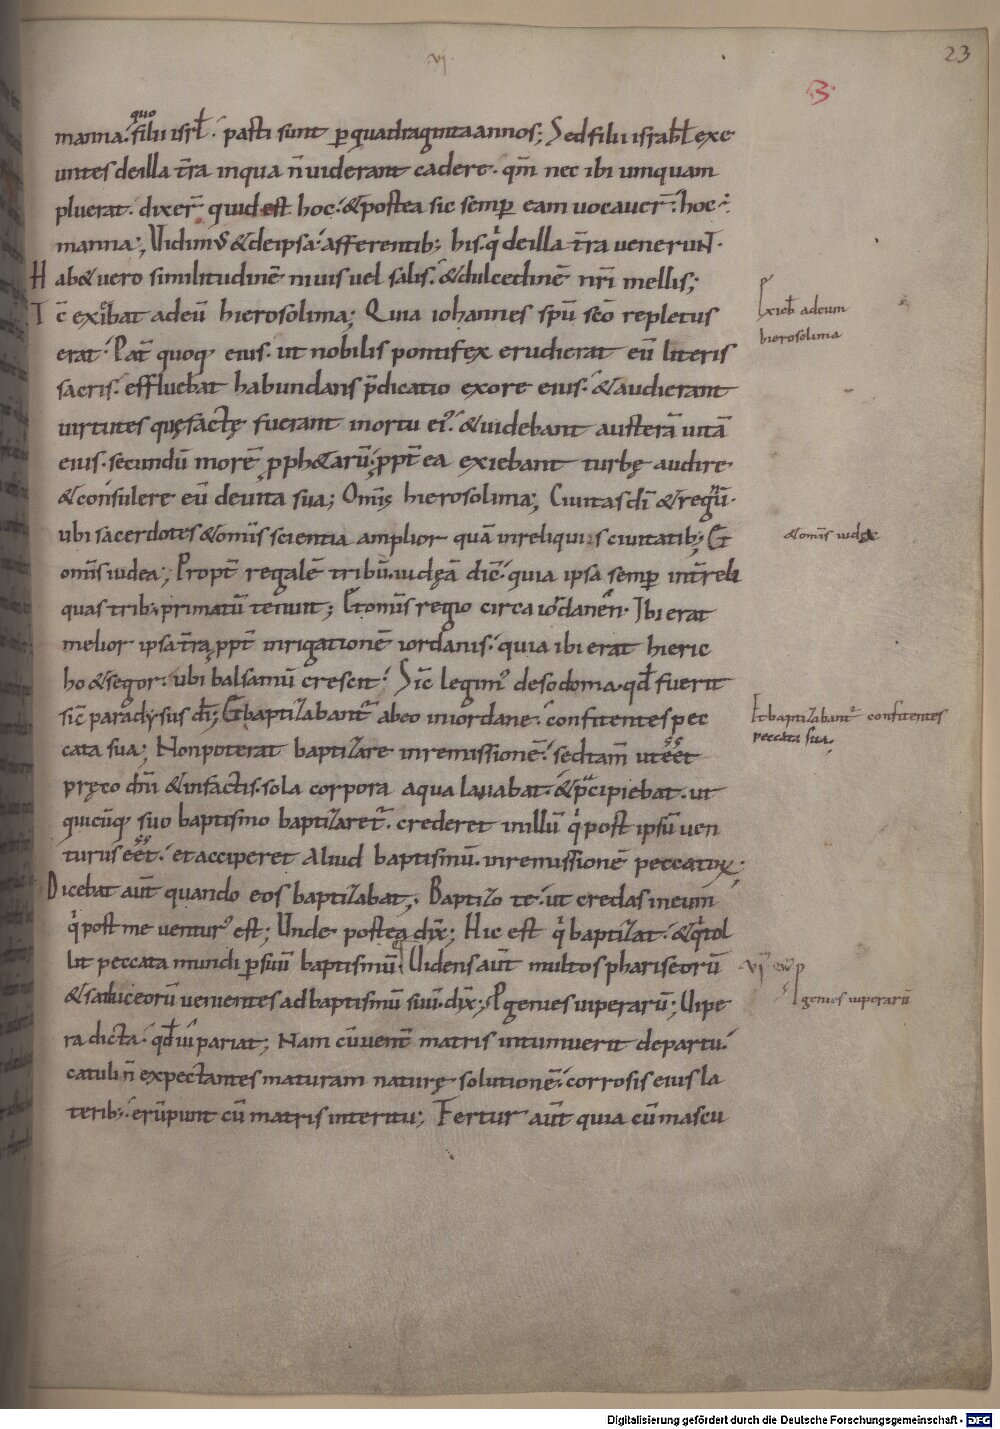 vj
23
B
quo
manna. filii isrł. pasti sunt ꝑ quadraginta annos; Sed filii israhł exe
untes de illa tr̄a in qua n̄ uiderant cadere. qm̄ nec ibi umquam
pluerat. dixer̄ quid est hoc. & postea sic semꝑ eam uocauer̄. hoc ÷
manna; Vidimꝰ & de ipsa. afferentib; his. q̇ de illa tr̄a ueneruNT.
Hab& uero similitudinē niuis uel salis. & dulcedinē nr̄i mellis;
Tc̄ exibat ad eū hierosolima; Quia iohannes spū sc̄o repletus
erat. Pat̄ quoqꝫ eius. ut nobilis pontifex erudierat eū literis
sacris. effluebat habundans p̄dicatio ex ore eius. & audierant
uirtutes quę factę fuerant in ortu eiꝰ. & uidebant austerā uitā
eius. secundū morē ꝓph&arū. ꝓpt̄ ea exiebant turbę audire
& consulere eū de uita sua; Om̄is hierosolima; Ciuitas dī & regū.
ubi sacerdotes & om̄is scientia amplior quā in reliquis ciuitatib; Et
om̄is iudea; Propt̄ regalē tribū. iudęā dic̄. quia ipsa semꝑ int̄ reli
quas trib; primatū tenuit; Et om̄is regio circa iordanen. Ibi erat
melior ipsa tr̄a ꝓpt̄ inrigationē iordanis. quia ibi erat hieric
ho & segor. ubi balsamū crescit. Sic̄ legimꝰ de sodoma. qđ fuerit
sic̄ paradysus dī; Et baptizabant᷑ ab eo in iordane. confitentes pec
cata sua; Non poterat baptizare in remissionē. sed tam̄ ut eēt
pręco dn̄i & in factis. sola corpora aqua lauabat. & p̄cipiebat. ut
quicūqꝫ suo baptismo baptizaret᷑. crederet in illū q̇ post ipsū uen
turus eēt. et acciperet aliud baptismū. in remissionē peccatoꝝ;
Dicebat aūt quando eos baptizabat; Baptizo te. ut credas in eum
q̇ post me uenturꝰ est; Unde postea dix̄; Hic est q̇ baptizat. & q̇ tol
lit peccata mundi ꝑ suū baptismū. Uidens aūt multos phariseorū
& saduceorū uenientes ad baptismū suū. dix̄; Pgenies uiperarū; Uipe
ra dicta. qđ ui pariat; Nam cū uent̄ matris intumuerit de partu.
catuli n̄ expectantes maturam naturę solutionē. corrosis eius la
terib; erūpunt cū matris interitu; Fertur aūt quia cū mascu
Exieb̄ ad eum
hierosolima
& om̄is iudęa
Et baptizabant᷑ confitentes
peccata sua.
Pgenies uiperarū
Digitalisierung gefördert durch die Deutsche Forschungsgemeinschaft - DFG